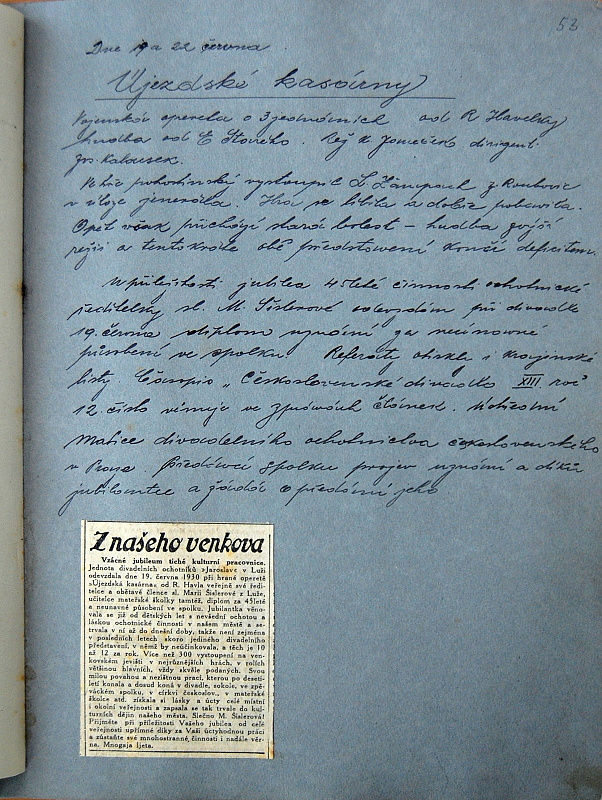 53
Dne 19 a 22 června.
Újezdské kasárny
Vojenská opereta o 3 jednáních od R Havelky
hudba od E Starého. Rež K dirigent
Jos. Kalousek.
pohostinsky vystoupil L. z
v úloze generála. Hra se líbila a dobře pobavila.
Opět však přichází stará bolest – hudba zvýší
režii a tentokráte obě představení končí deficitem.
U příležitosti jubilea 45leté činnosti ochotnické
ředitelky sl. M. Sislerové odevzdán při divadle
19. června diplom uznání za neúnavné
působení ve spolku. Referáty i krajinské
listy. Časopis „Československé divadlo XIII roč
12. číslo věnuje ve zprávách článek. Ústřední
Matice divadelního ochotnictva československého
v Praze. spolku projev uznání a díků
jubilantce a žádá o předání jeho
Z našeho venkova
Vzácné jubileum tiché kulturní pracovnice.
Jednota divadelních ochotníků »Jaroslav« v Luži
odevzdala dne 19. června 1930 při hrané operetě
»Újezdská kasárna« od R. Havla veřejně své ředi-
telce a obětavé člence sl. Marii Sislerové z Luže,
učitelce mateřské školky tamtéž, diplom za 45leté
a neunavné působení ve spolku. Jubilantka věno-
vala se již od dětských let s nevšední ochotou a
láskou ochotnické činnosti v našem městě a se-
trvala v ní až do dnešní doby, takže není zejména
v posledních letech skoro jediného divadelního
představení, v němž by neúčinkovala, a těch je 10
až 12 za rok. Více než 300 vystoupení na ven-
kovském jevišti v nejrůznějších hrách, v rolích
většinou hlavních, vždy skvěle podaných. Svou
milou povahou a nezištnou prací, kterou po deseti-
letí konala a dosud koná v divadle, sokole, ve zpě-
váckém spolku, v církvi českoslov., v mateřské
školce atd. získala si lásky a úcty celé místní
i okolní veřejnosti a zapsala se tak trvale do kul-
turních dějin našeho města. Slečno M. Sislerová!
Přijměte při příležitosti Vašeho jubilea od celé
veřejnosti upřímné díky za Vaši úctyhodnou práci
a zůstaňte své mnohostranné činnosti i nadále věr-
na. Mnogaja ljeta.